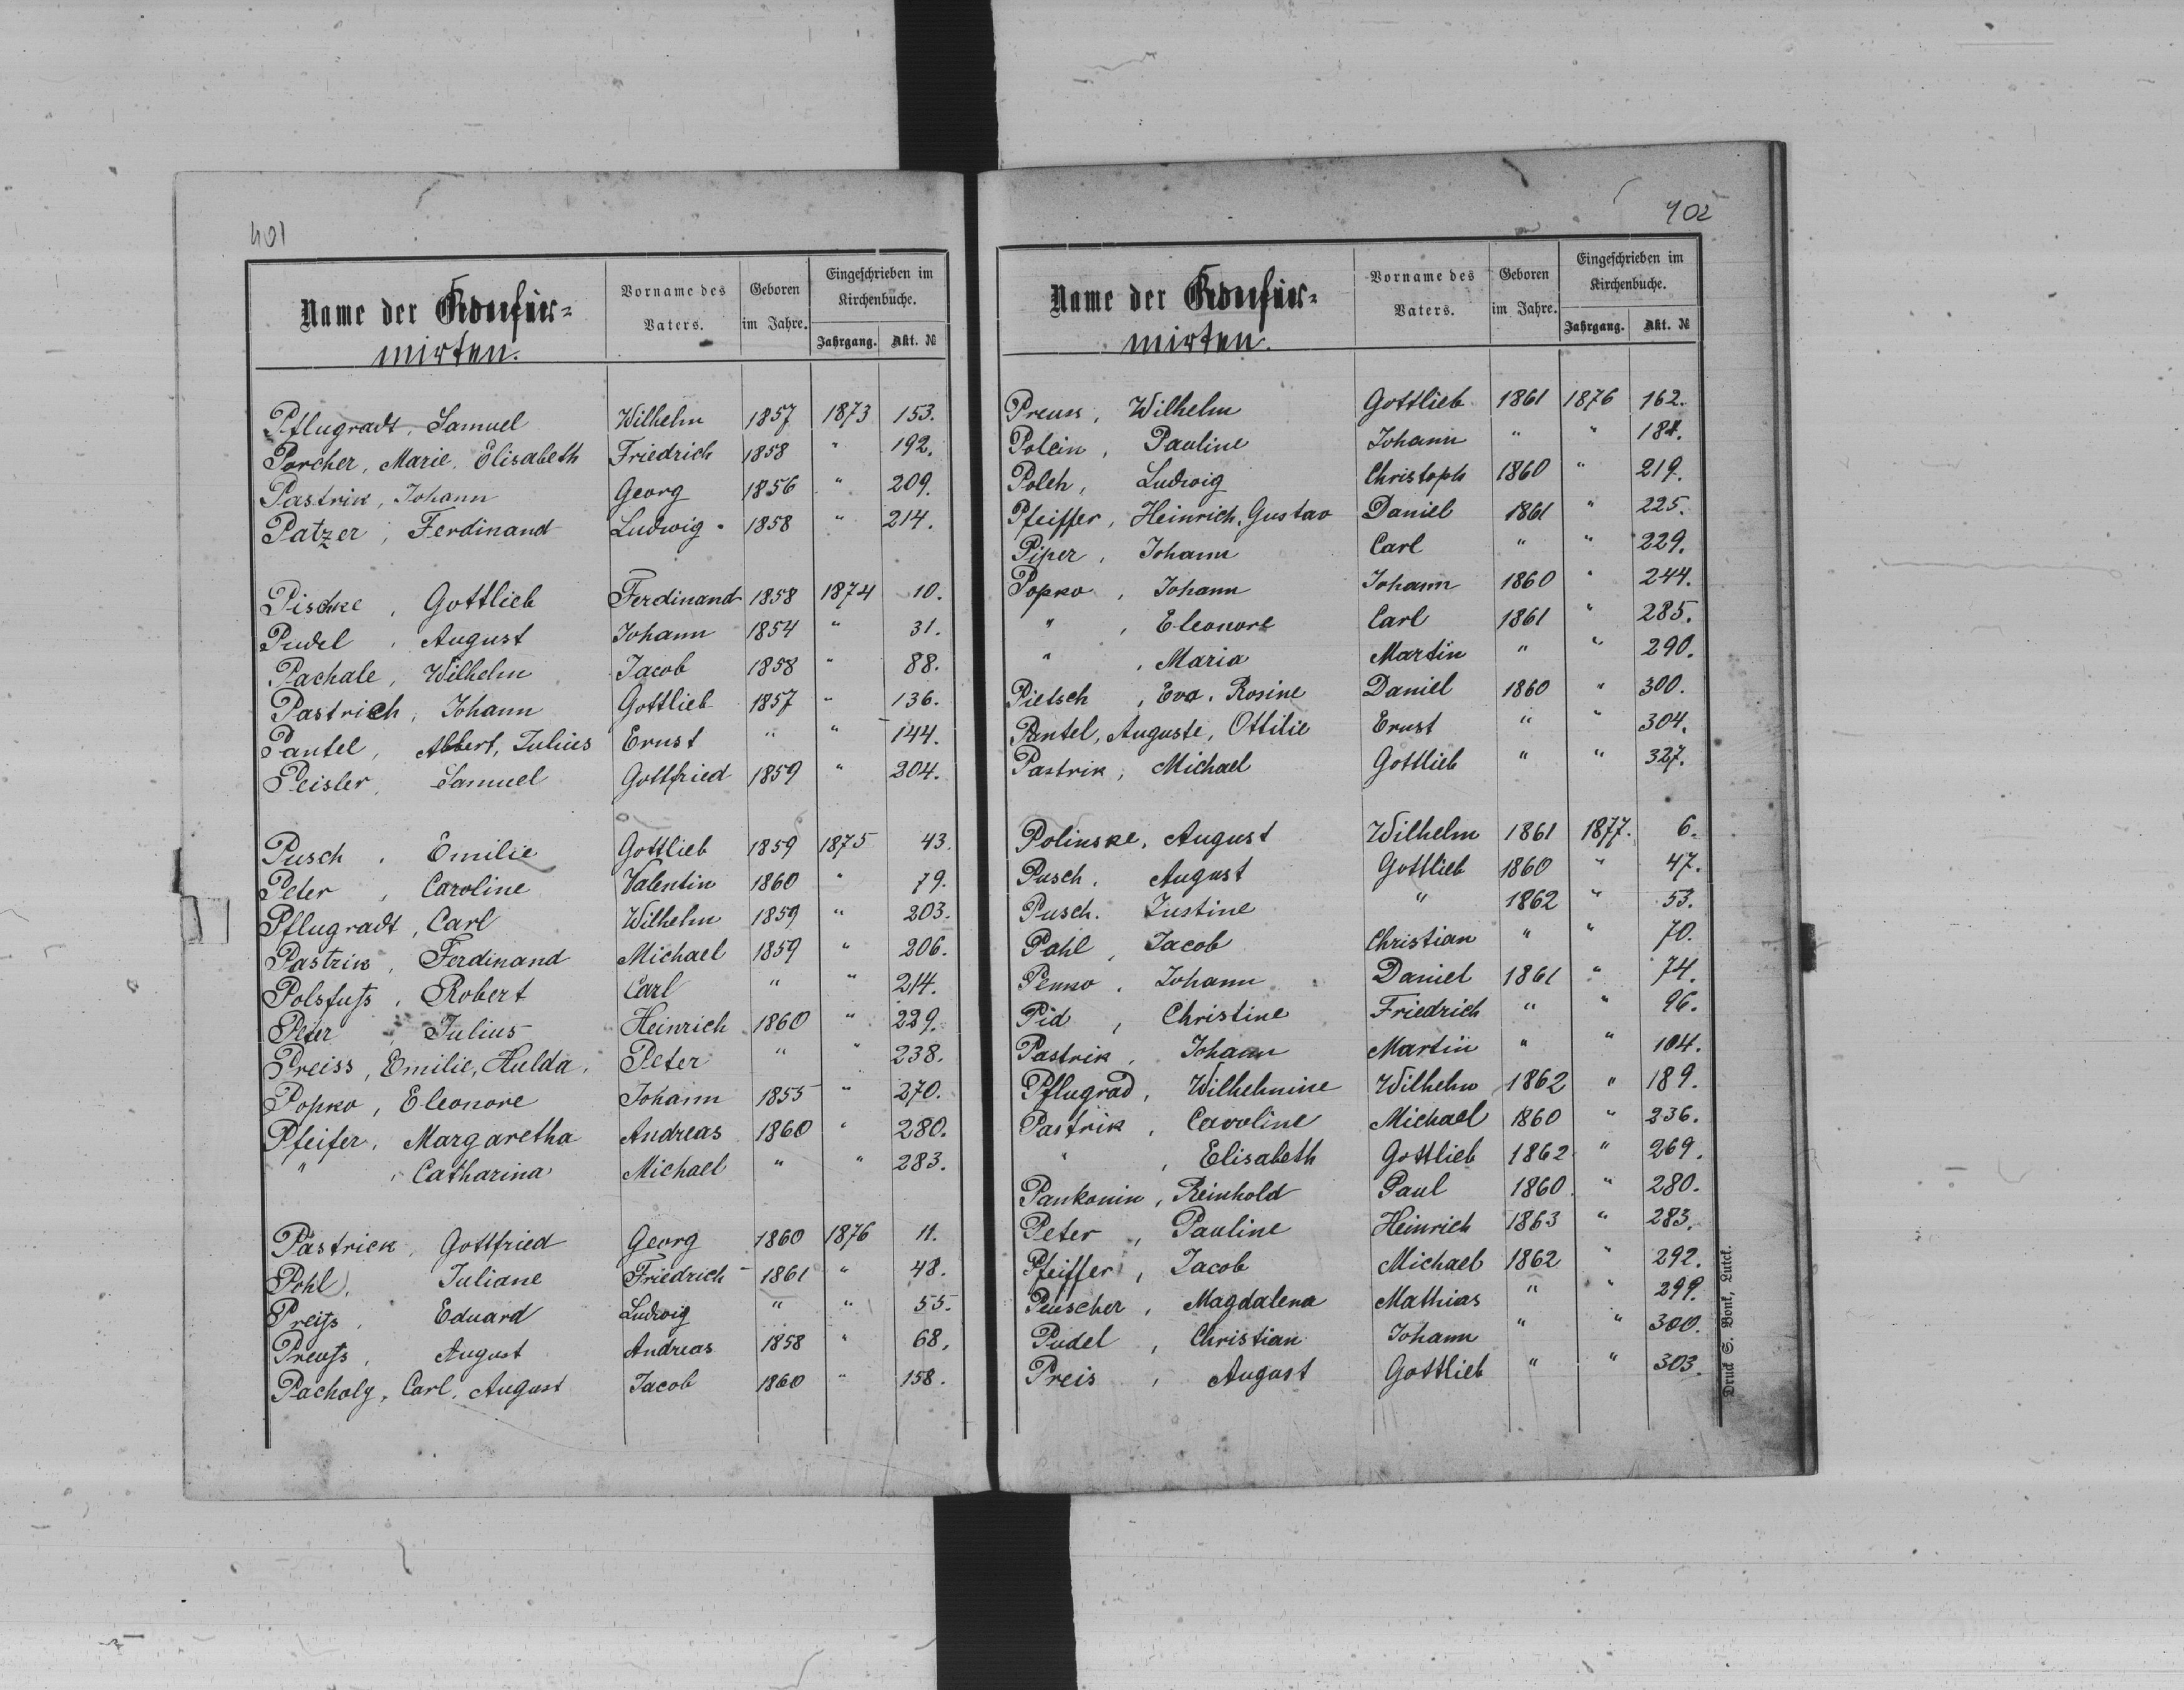 401
Name der Konfir=
mirten.
Vorname des Vaters.
Geboren im Jahre.
Eingeschrieben im Kirchenbuche.
Jahrgang. Akt. №
Pflugradt, Samuel Wilhelm 1857 1873 153.
Porcher, Marie, Elisabeth Friedrich 1858 " 192.
Pastrik, Johann Georg 1856 " 209.
Patzer, Ferdinand Ludwig 1858 " 214.
Pischke, Gottlieb Ferdinand 1858 1874 10.
Pudel, August Johann 1854 " 31.
Pachale, Wilhelm Jacob 1858 " 88.
Pastrich, Johann Gottlieb 1857 " 136.
Pantel, Albert, Julius Ernst " " 144.
Peisler, Samuel Gottfried 1859 " 204.
Pusch, Emilie Gottlieb 1859 1875 43.
Peter, Caroline Valentin 1860 " 79.
Pflugradt, Carl Wilhelm 1859 " 203.
Pastrik, Ferdinand Michael 1859 " 206.
Polsfuſs, Robert Carl " " 214.
Peter, Julius Heinrich 1860 " 229.
Preiss, Emilie, Hulda, Peter " " 238.
Popko, Eleonore Johann 1855 " 270.
Pfeifer, Margaretha Andreas 1860 " 280.
" , Catharina Michael " " 283.
Pastrick, Gottfried Georg 1860 1876 11.
Pohl, Juliane Friedrich 1861 " 48.
Preiſs, Eduard Ludwig " " 55.
Preuſs, August Andreas 1858 " 68.
Pacholy, Carl, August Jacob 1860 " 158.
402
Name der Konfir=
mirten.
Vorname des Vaters.
Geboren im Jahre.
Eingeschrieben im Kirchenbuche.
Jahrgang. Akt. №
Preuss, Wilhelm Gottlieb 1861 1876 162.
Polein, Pauline Johann " " 184.
Polch, Ludwig Christoph 1860 " 219.
Pfeiffer, Heinrich, Gustav Daniel 1861 " 225.
Piper, Johann Carl " " 229.
Popko, Johann Johann 1860 " 244.
" , Eleonore Carl 1861 " 285.
" , Maria Martin " " 290.
Pietsch, Eva, Rosine Daniel 1860 " 300.
Pantel, Auguste, Ottilie Ernst " " 304.
Pastrik, Michael Gottlieb " " 327.
Polinske, August Wilhelm 1861 1877. 6.
Pusch, August Gottlieb 1860 " 47.
Pusch. Justine " 1862 " 53.
Pohl, Jacob Christian " " 70.
Penno, Johann Daniel 1861 " 74.
Pid, Christine Friedrich " " 96.
Pastrik, Johann Martin " " 104.
Pflugrad, Wilhelmine Wilhelm 1862 " 189.
Pastrik, Caroline Michael 1860 " 236.
" , Elisabeth Gottlieb 1862 " 269.
Pankonin, Reinhold Paul 1860 " 280.
Peter, Pauline Heinrich 1863 " 283.
Pfeiffer, Jacob Michael 1862 " 292.
Peuscher, Magdalena Mathias " " 299.
Pudel, Christian Johann " " 300.
Preis, August Gottlieb " " 303.
Druck S. Bonk, Luck.